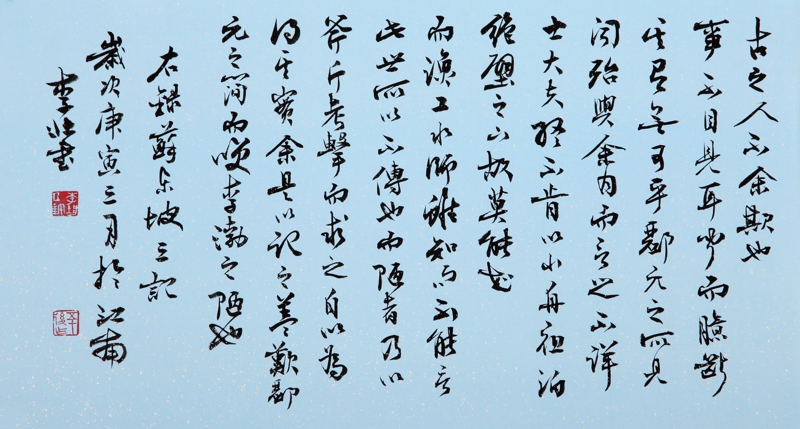 古之人不余欺也
事不目見耳聞而臆斷
其有無可乎酈元之所見
聞殆與余同而言之不詳
士大夫終不肯以小舟夜泊
絕壁之下故莫能知
而漁工水師雖知而不能言
此世所以不傳也而陋者乃以
斧斤考擊而求之自以為
得其實余是以記之蓋歎酈
元之簡而笑李渤之陋也
右錄蘇東坡之記
歲次庚寅三月於江
李書